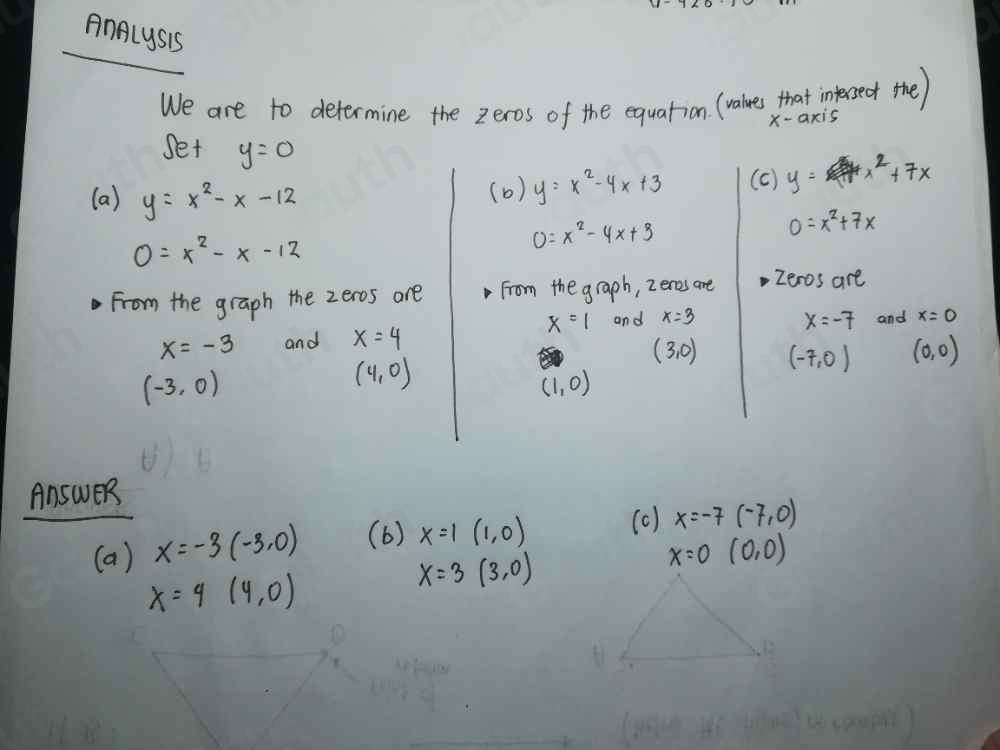 ANALYSIS
We are to determine the zeros of the equation. (values that intersect the x-axis)
Set y=0
(a) y = x² - x - 12
0 = x² - x - 12
▸ From the graph the zeros are
x = -3 and x = 4
(-3, 0) (4, 0)
(b) y = x² - 4x + 3
0 = x² - 4x + 3
▸ From the graph, zeros are
x = 1 and x = 3
(3,0)
(1,0)
(c) y = x² + 7x
0 = x² + 7x
▸ Zeros are
x = -7 and x = 0
(-7,0) (0,0)
ANSWER
(a) x = -3 (-3,0)
x = 4 (4,0)
(b) x = 1 (1,0)
x = 3 (3,0)
(c) x = -7 (-7,0)
x = 0 (0,0)